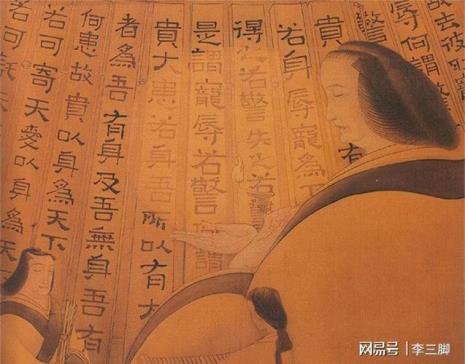 故去彼
辱何謂
貴
若身辱寵為下
得之若驚失之若驚
是謂寵辱若驚何謂
貴大患若身吾所以有大
者為吾有身及吾無身吾有
何患故貴以身為天下
若可寄天愛以身
若可
网易号 | 李三脚